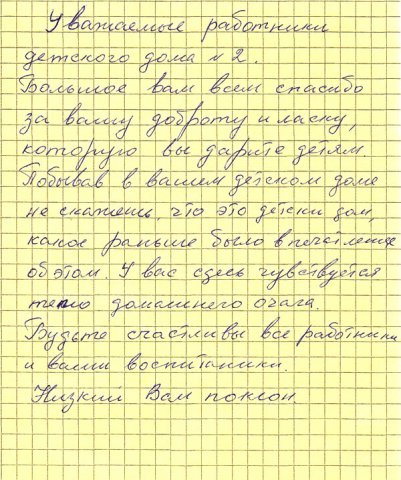 Уважаемые работники
детского дома №2.
Большое вам всем спасибо
за вашу доброту и ласку,
которую вы дарите детям
Побывав в вашем детском доме
не скажешь, что это детски дом,
какое раньше было впечатление
об этом. У вас сдесь чувствуется
тепло домашнего очага.
Будьте счастливы все работники
и ваши воспитаники.
Низкий Вам поклон.